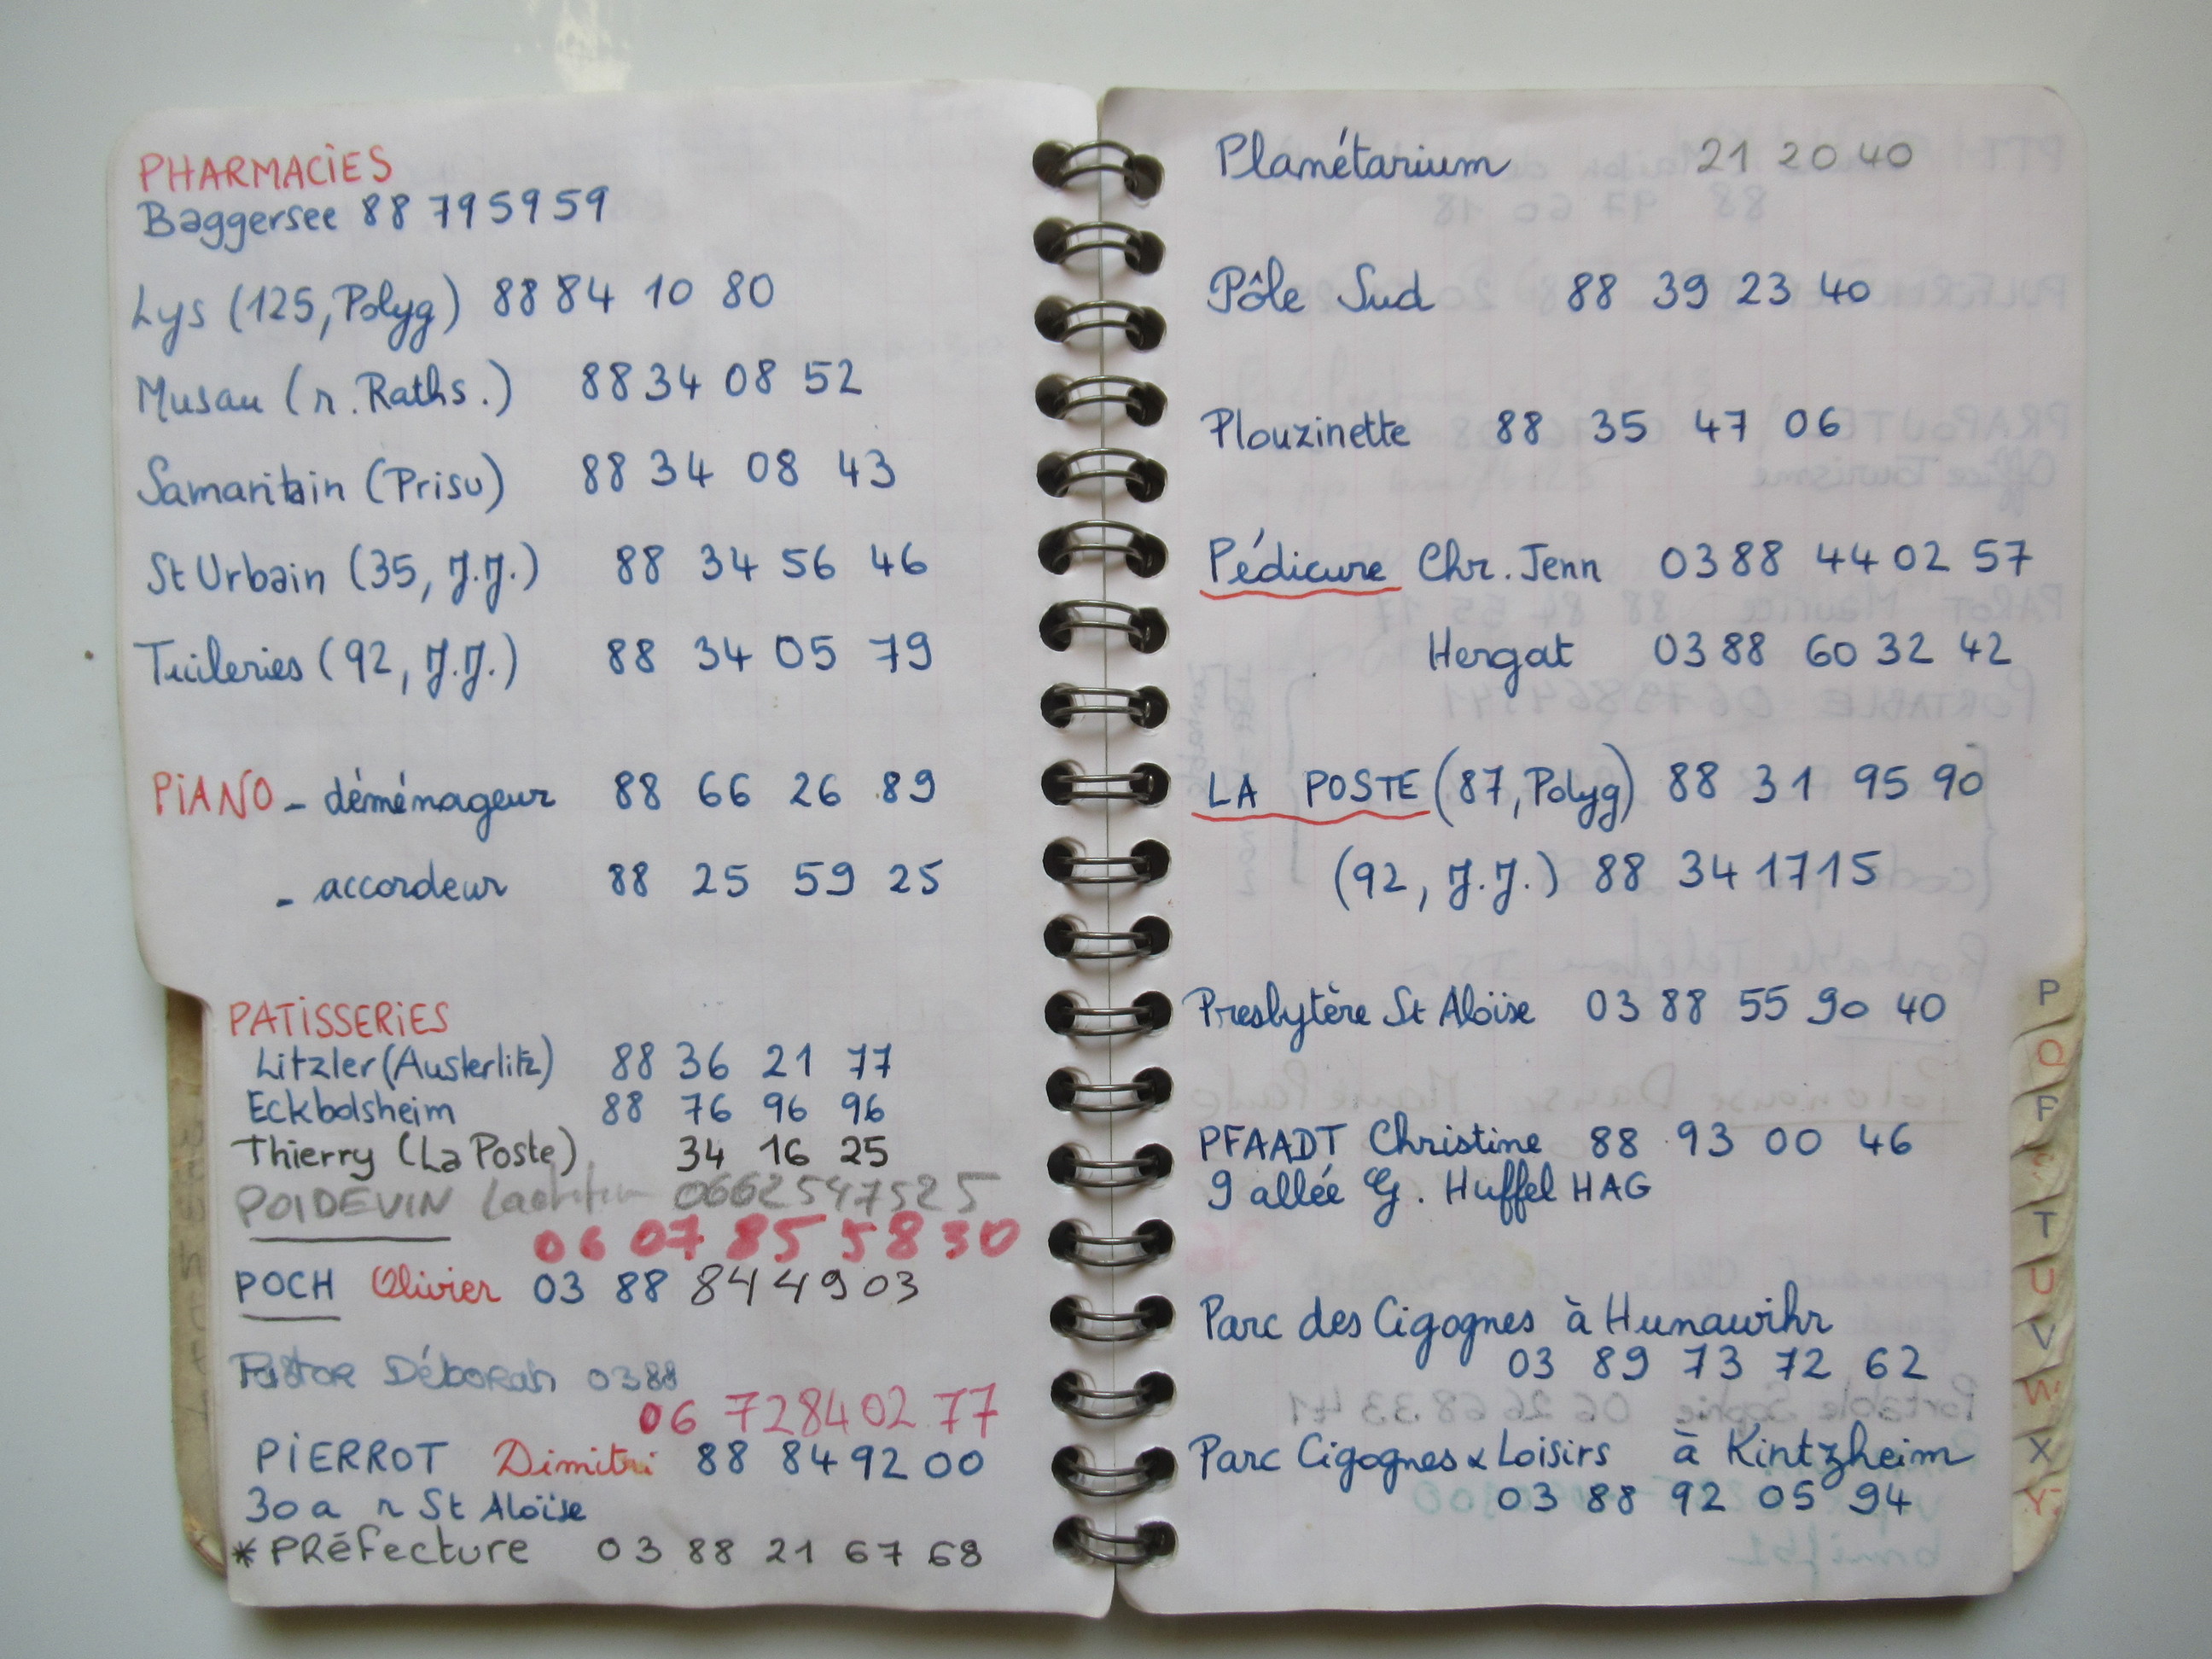 PHARMACIES
Baggersee 88 79 59 59
Lys (125, Polyg) 88 84 10 80
Musau (r. Raths.) 88 34 08 52
Samaritain (Prisu) 88 34 08 43
St Urbain (35, J.J.) 88 34 56 46
Tuileries (92, J.J.) 88 34 05 79
PIANO - déménageur 88 66 26 89
- accordeur 88 25 59 25
PATISSERIES
Litzler (Austerlitz) 88 36 21 77
Eckbolsheim 88 76 96 96
Thierry (La Poste) 34 16 25
POIDEVIN Laetitia 0662547525
06 07 85 58 30
POCH Olivier 03 88 84 49 03
Pastor Déborah 0388
06 72840277
PIERROT Dimitri 88 84 92 00
30 a r St Aloïse
* PRéfecture 03 88 21 67 68
Planétarium 21 20 40
Pôle Sud 88 39 23 40
Plouzinette 88 35 47 06
Pédicure Chr. Jenn 03 88 44 02 57
Hergat 03 88 60 32 42
LA POSTE (87, Polyg) 88 31 95 90
(92, J.J.) 88 34 17 15
Presbytère St Aloïse 03 88 55 90 40
PFAADT Christine 88 93 00 46
9 allée G. Huffel HAG
Parc des Cigognes à Hunawihr
03 89 73 72 62
Parc Cigognes & Loisirs à Kintzheim
03 88 92 05 94
P
Q
F
T
U
V
W
X
Y